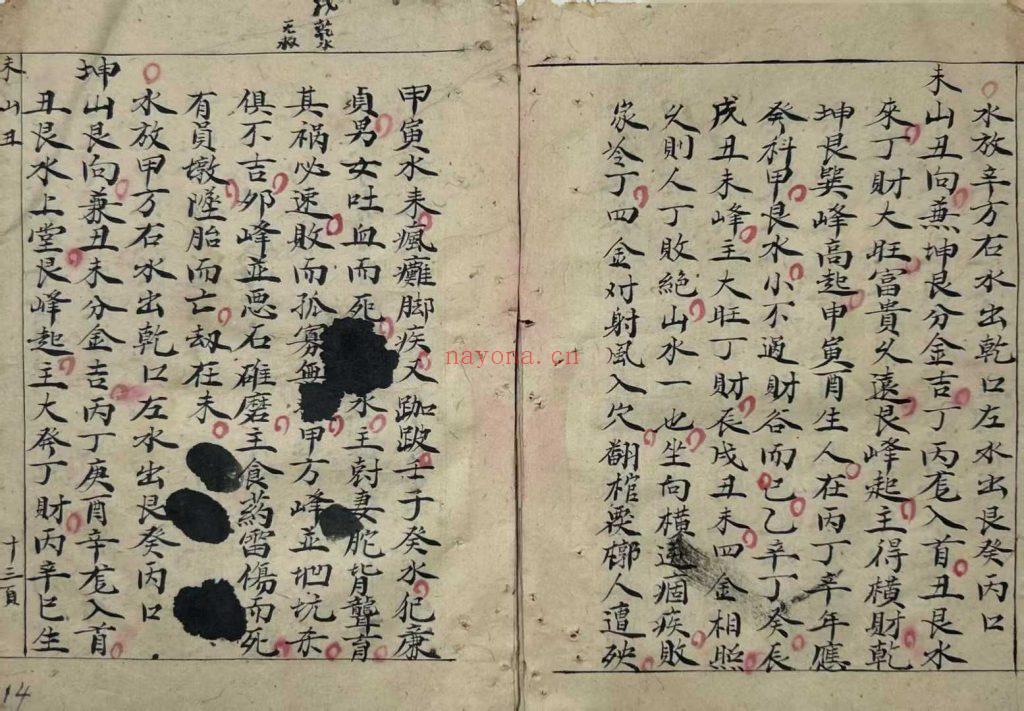 水放辛方右水出乾口左水出艮癸丙口
未山丑向兼坤艮分金吉丁丙龙入首丑艮水
來丁財大旺富貴久遠艮峰起主得横財乾
坤艮巽峰高起申寅酉生人在丙丁辛年應
發科甲艮水小不過財谷而已乙辛丁癸辰
戌丑未峰主大旺丁財辰戌丑未四金相照
久則人丁敗絕山水一也坐向横逆痼疾敗
家冷丁四金对射風入穴翻棺槨人遭殃
找乾水
无救
甲寅水來瘋癱脚疾又跏跛壬子癸水犯廉
貞男女吐血而死水主尅妻駝背聾盲
其禍必速敗而孤寡無甲方峰並坭坑东
俱不吉夘峰並恶石碓磨主食药雷傷而死
有員墩墜胎而亡劫在未
水放甲方右水出乾口左水出艮癸丙口
坤山艮向兼丑未分金吉丙丁庚酉辛龙入首
丑艮水上堂艮峰起主大發丁財丙辛巳生
未山丑
十三頁
14
nayona.cn